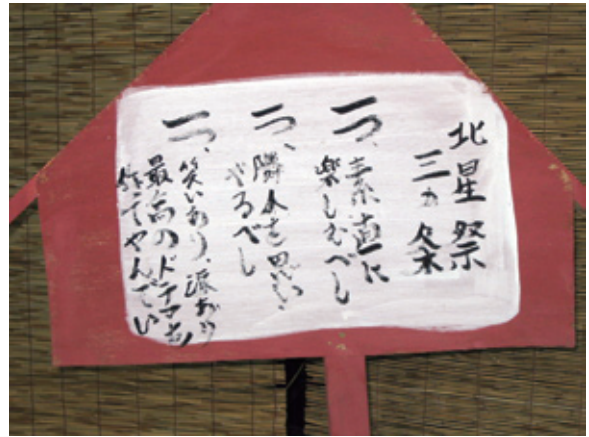 北星祭
三カ条
一つ、素直に
楽しむべし
一つ、隣人を思い
やるべし
一つ、笑いあり、涙あり
最高のドラマを
作ってやんでい